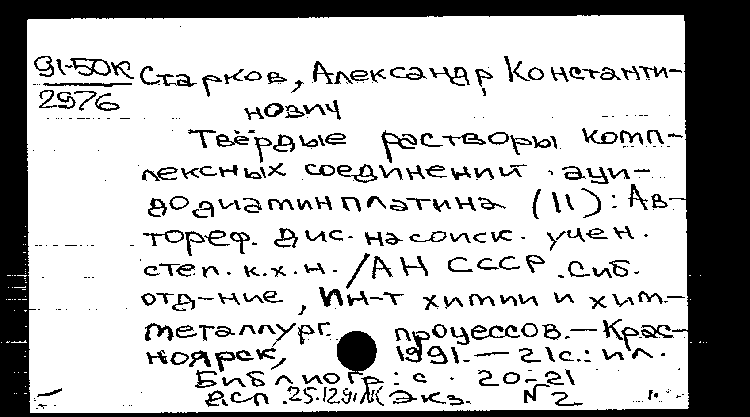 91-50К
2976
Старков, Александр Константи-
нович
Твёрдые растворы комп-
лексных соединений ауи-
додиаминплатина (II): Ав-
тореф. дис. на соиск. учен.
степ. к.х.н. / АН СССР. Сиб.
отд-ние, Ин-т химии и хим.-
металлург. процессов. — Крас-
ноярск, 1991. — 21с.: ил.
Библиогр.: с. 20-21
Дсп. 25.12.91 Экз. N 2